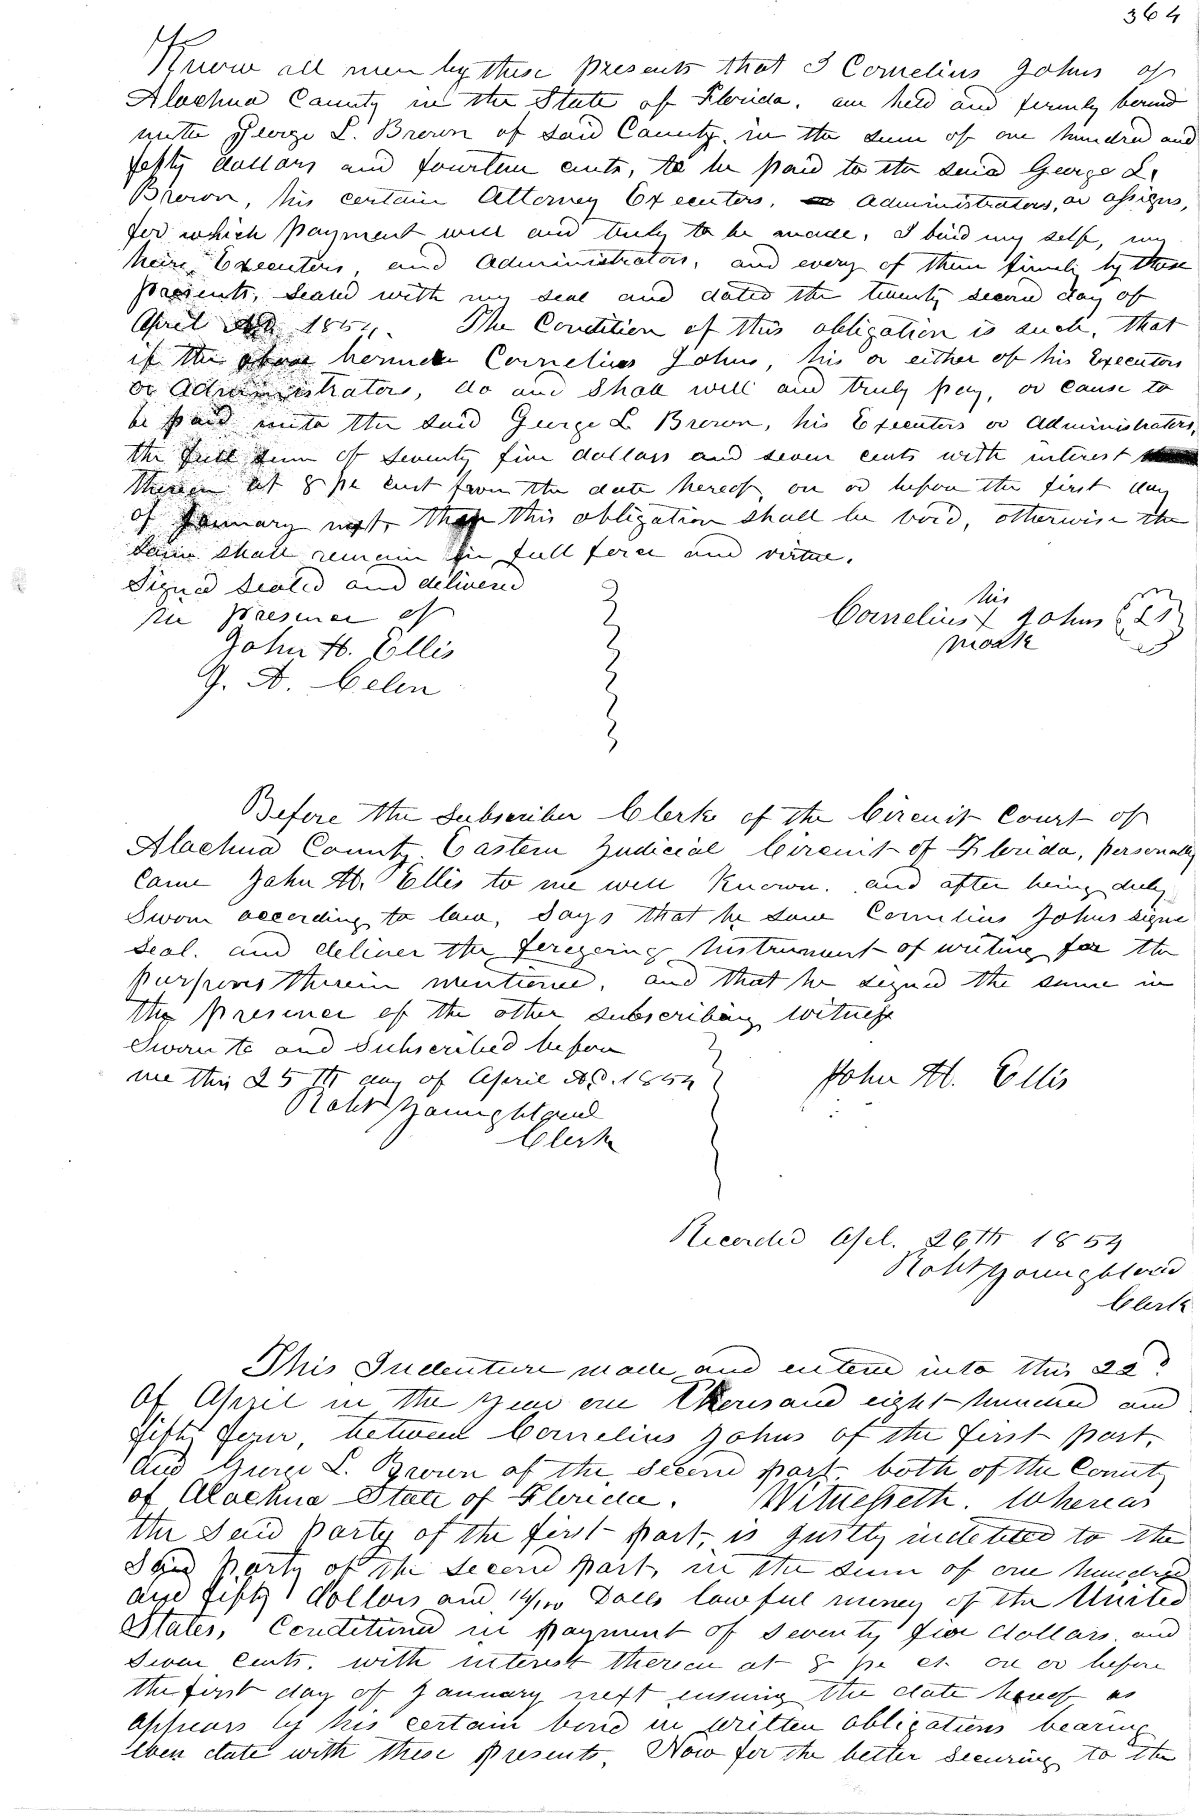 364
Know all men by these presents that I Cornelius Johns of
Alachua County in the State of Florida, am held and firmly bound
unto George L. Brown of said County, in the sum of one hundred and
fifty dollars and fourteen cents, to be paid to the said George L.
Brown, his certain Attorney Executors, administrators, or assigns,
for which payment well and truly to be made, I bind my self, my
heirs, Executors, and administrators, and every of them firmly by these
presents, sealed with my seal and dated the twenty second day of
April AD 1854. The Condition of this obligation is such, that
if the above bounde Cornelius Johns, his or either of his Executors
or administrators, do and shall well and truly pay, or cause to
be paid unto the said George L Brown, his Executors or administrators,
the full sum of seventy five dollars and seven cents with interest
thereon at 8 pe cent from the date hereof, on or before the first day
of January next, then this obligation shall be void, otherwise the
same shall remain in full force and virtue.
Signed Sealed and delivered
in presence of
John H. Ellis
J. A.
his
Cornelius X Johns (LS)
mark
Before the Subscriber Clerk of the Circuit Court of
Alachua County Eastern Judicial Circuit of Florida, personally
came John H. Ellis to me well known, and after being duly
Sworn according to law, says that he saw Cornelius Johns signe
seal. and deliver the foregoing Instrument of writing for the
purposes therein mentioned, and that he signed the same in
the presence of the other subscribing witness
Sworn to and Subscribed before
me this 25th day of April AD. 1854
Robt Youngblood
Clerk
John H. Ellis
Recorded Apl. 26th 1854
Robt Youngblood
Clerk
This Indenture made and entered into this 22d
of April in the year one thousand eight hundred and
fifty four, between Cornelius Johns of the first part,
and George L. Brown of the second part, both of the County
of Alachua State of Florida. Witnesseth. Whereas
the said party of the first part, is justly indebted to the
said party of the second part, in the sum of one hundred
and fifty dollars and 14/100 Dolls lawful money of the United
States, Conditioned in payment of seventy five dollars and
seven cents. with interest thereon at 8 pe ct. on or before
the first day of January next ensuing the date hereof as
appears by his certain bond in written obligations bearing
even date with these presents, Now for the better securing to the